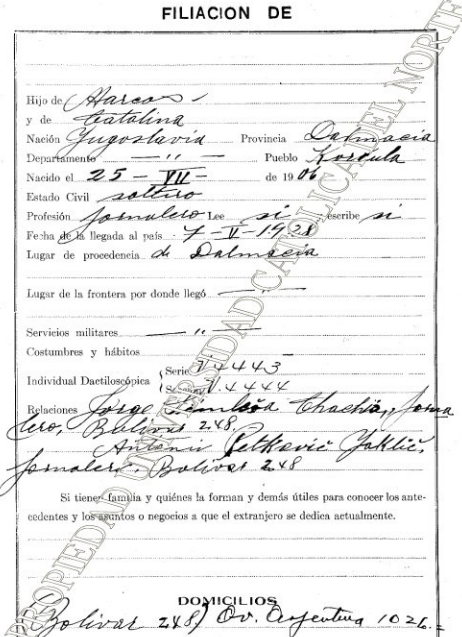 FILIACION DE
Hijo de Marcos
y de Catalina
Nación Yugoslavia Provincia Dalmacia
Departamento — " — Pueblo Korcula
Nacido el 25 – VII – de 1906
Estado Civil soltero
Profesión jornalero Lee si escribe si
Fecha de la llegada al país 7-V-1928
Lugar de procedencia de Dalmacia
Lugar de la frontera por donde llegó
Servicios militares — " —
Costumbres y hábitos —
Serie V.4443
Individual Dactiloscópica
Sección V.4444
Relaciones Jorge jorna
lero, Bolivar 248,
Antonio Petković
jornalero. Bolivar 248
Si tiene familia y quiénes la forman y demás útiles para conocer los ante-
cedentes y los asuntos o negocios a que el extranjero se dedica actualmente.
DOMICILIOS
Bolivar 248) Av. Argentina 1026.=
PROPIEDAD UNIVERSIDAD CATOLICA DEL NORTE